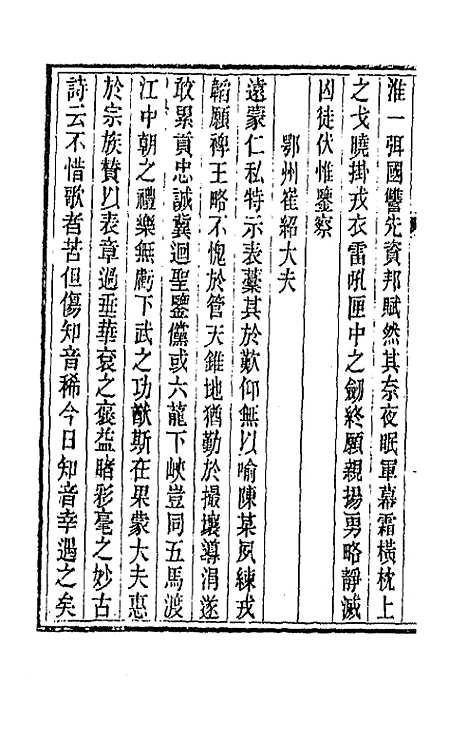 淮一弭國讐先資邦賦然其奈夜眠軍幕霜橫枕上
之戈曉掛戎衣雷吼匣中之劒終願親揚勇略靜滅
凶徒伏惟鑒察
鄂州崔紹大夫
遠蒙仁私特示表藁其於歎仰無以喻陳某夙練戎
韜願裨王略不愧於管天錐地猶勤於撮壤導涓遂
敢累貢忠誠冀迴聖鑒儻或六龍下峽豈同五馬渡
江中朝之禮樂無虧下武之功猷斯在果蒙大夫惠
於宗族賛以表章過垂華衮之褒益睹彩毫之妙古
詩云不惜歌者苦但傷知音稀今日知音幸遇之矣